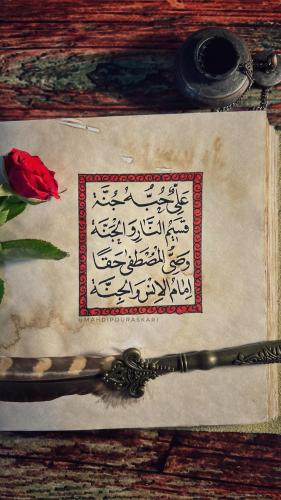 عَلیٌّ حُبُّهُ جُنَّة
قَسِیمُ النّارِ وَ الْجَنَّة
وَصیُّ المُصْطَفیٰ حَقّاً
اِمامُ الاِنْسِ وَ الْجِنَّة
@MAHDIPOURASKARI